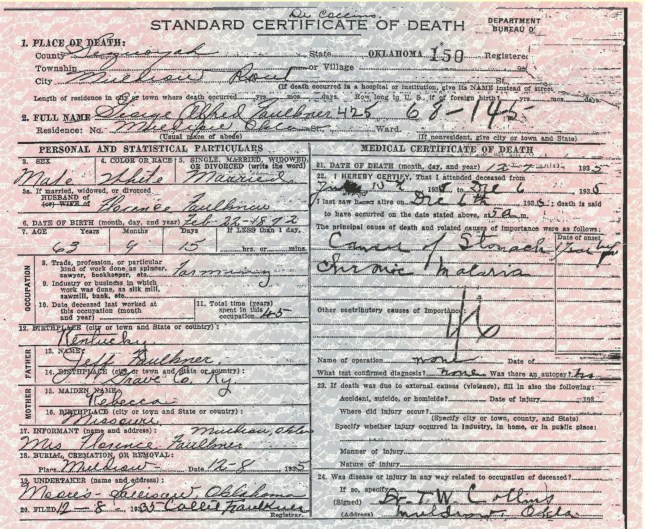 Dr Collins
STANDARD CERTIFICATE OF DEATH
DEPARTMENT
BUREAU O
1. PLACE OF DEATH:
County Sequoyah State OKLAHOMA 150 Registere
Township or Village
City Muldrow Rout St.
(If death occurred in a hospital or institution, give its NAME instead of street
Length of residence in city or town where death occurred yrs. mos. days. How long in U. S. if of foreign birth? yrs. mos. days.
2. FULL NAME George Alfred Faulkner 425 68-145
Residence: No. Okla St. Ward.
(Usual place of abode) (If nonresident, give city or town and State)
PERSONAL AND STATISTICAL PARTICULARS
3. SEX 4. COLOR OR RACE 5. SINGLE, MARRIED, WIDOWED, OR DIVORCED (write the word)
Male White Married
5a. If married, widowed, or divorced
HUSBAND of
(or) WIFE of Florence Faulkner
6. DATE OF BIRTH (month, day, and year) Feb-22-1872
7. AGE Years Months Days If LESS than 1 day,
63 9 15 hrs. or mins.
OCCUPATION
8. Trade, profession, or particular kind of work done as spinner, sawyer, bookkeeper, etc. Farming
9. Industry or business in which work was done, as silk mill, sawmill, bank, etc.
10. Date deceased last worked at this occupation (month and year)
11. Total time (years) spent in this occupation 45
12. BIRTHPLACE (city or town and State or country):
Kentucky
FATHER
13. NAME:
Jeff Faulkner
14. BIRTHPLACE (city or town and State or country):
Grave Co. Ky.
MOTHER
15. MAIDEN NAME:
Rebecca
16. BIRTHPLACE (city or town and State or country):
Missouri
17. INFORMANT (name and address): Muldrow, Okla
Mrs Florence Faulkner
18. BURIAL, CREMATION, OR REMOVAL:
Place Muldrow Date 12-8 1935
19. UNDERTAKER (name and address):
Oklahoma
20. FILED 12-8-1935 Callie Faulkner
Registrar.
MEDICAL CERTIFICATE OF DEATH
21. DATE OF DEATH (month, day, and year) 1935
22. I HEREBY CERTIFY, That I attended deceased from
1935 to Dec 6 1935
I last saw h alive on Dec 6th 1935; death is said
to have occurred on the date stated above, at 5 a m.
The principal cause of death and related causes of importance were as follows:
Date of onset
Cancer of Stomach
Chronic Malaria
Other contributory causes of importance:
46
Name of operation none Date of
What test confirmed diagnosis? none Was there an autopsy? no
23. If death was due to external causes (violence), fill in also the following:
Accident, suicide, or homicide? Date of injury 193
Where did injury occur?
(Specify city or town, county, and State)
Specify whether injury occurred in industry, in home, or in public place:
Manner of injury
Nature of injury
24. Was disease or injury in any way related to occupation of deceased?
If so, specify
(Signed) Dr T. W. Collins
(Address) Muldrow Okla.